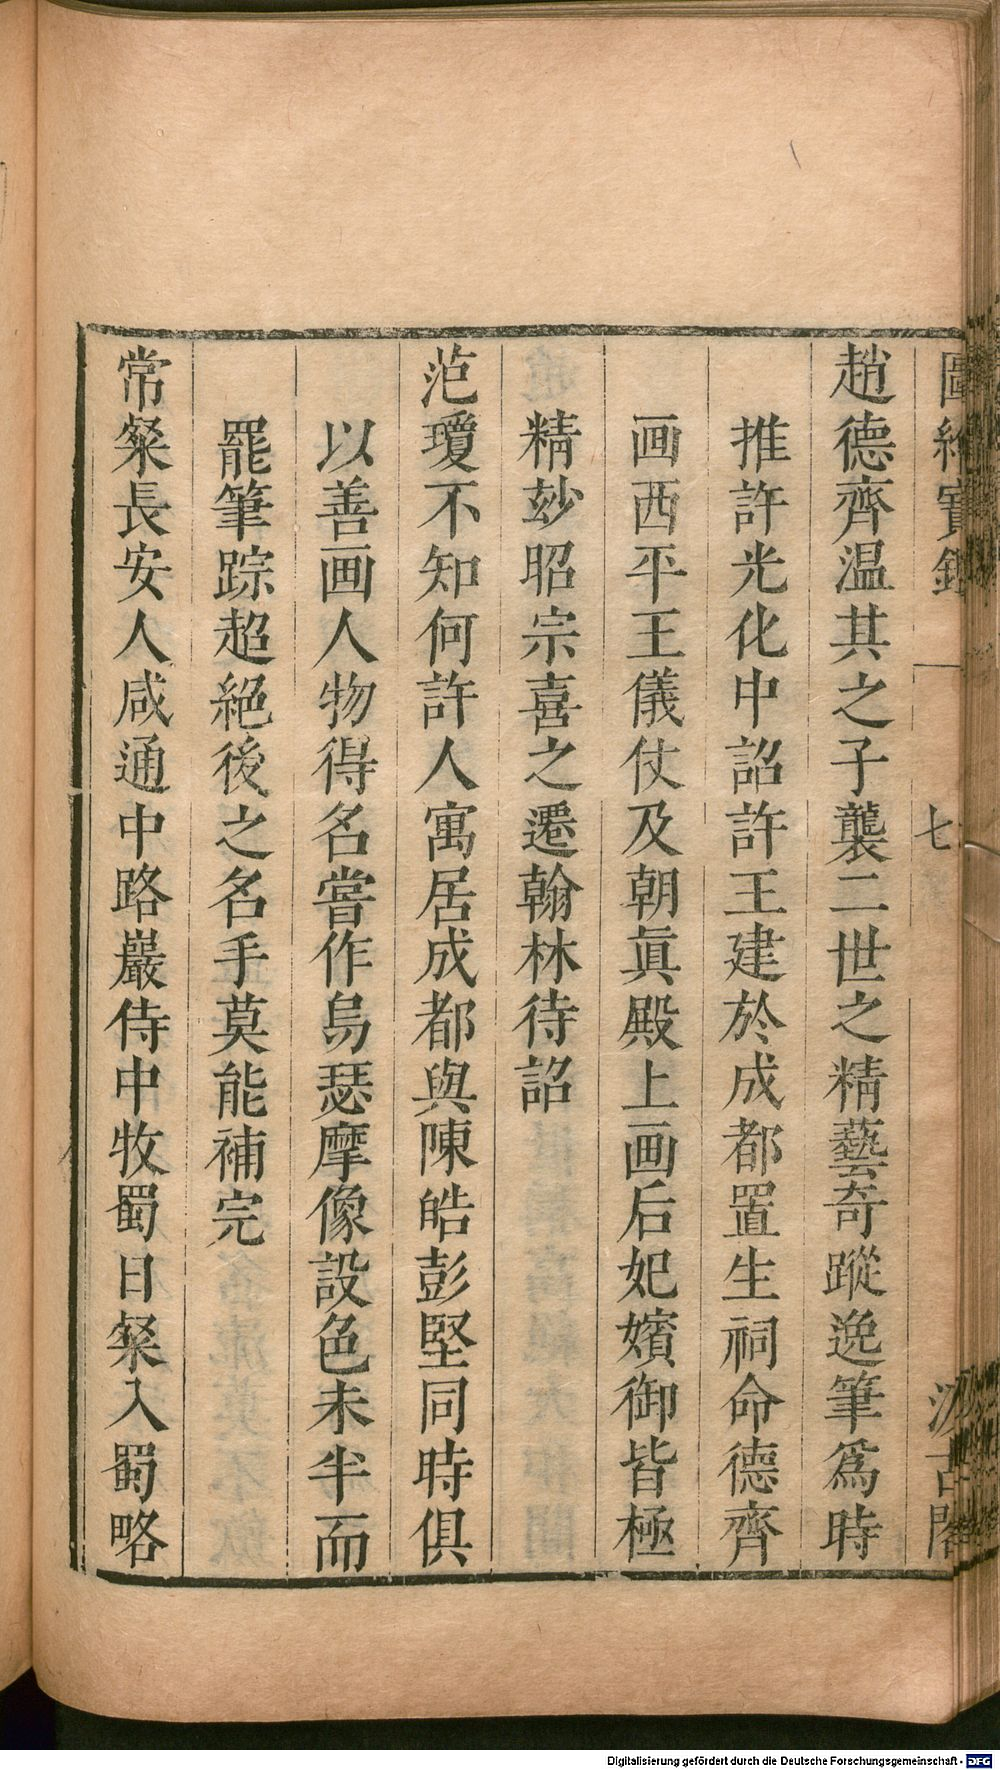 圖繪寶鑑 七 汲古閣
趙德齊温其之子襲二世之精藝奇蹤逸筆爲時
推許光化中詔許王建於成都置生祠命德齊
画西平王儀仗及朝眞殿上画后妃嬪御皆極
精玅昭宗喜之遷翰林待詔
范瓊不知何許人寓居成都與陳皓彭堅同時俱
以善画人物得名嘗作烏瑟摩像設色未半而
罷筆踪超絕後之名手莫能補完
常粲長安人咸通中路巖侍中牧蜀日粲入蜀路
Digitalisierung gefördert durch die Deutsche Forschungsgemeinschaft - DFG